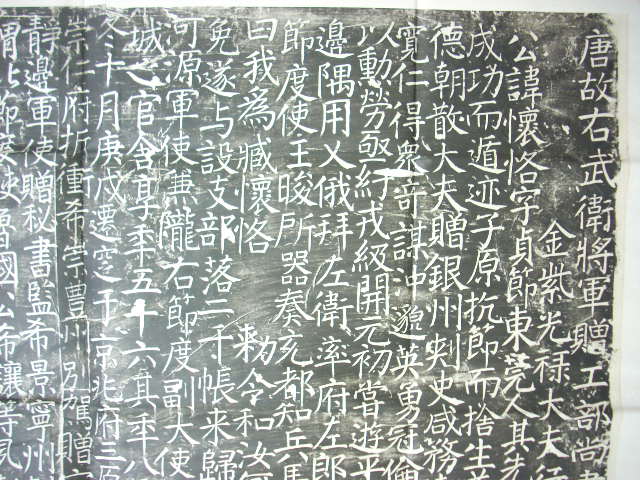 唐故右武衛將軍贈工部尚書
金紫光祿大夫行
公諱懷恪字貞節東莞人其先
成功而遁迹子原抗節而捨生
德朝散大夫贈銀州刺史咸務
寬仁得眾奇謀沖邈英勇冠倫
以勳勞亟紆戎級開元初嘗遊平
邊隅用乂俄拜左衛率府左郎
節度使王晙所器奏充都知兵馬
曰我為臧懷恪 敕令和汝
免遂与設支部落二千帳来歸
河源軍使兼隴右節度副大使
城之官舍享年五十六其年八
冬十月庚戌遷窆于京兆府三原
崇仁府折衝希崇豐州別駕贈
靜邊軍使贈秘書監希景寧州
渭北節度使魯國公希讓等